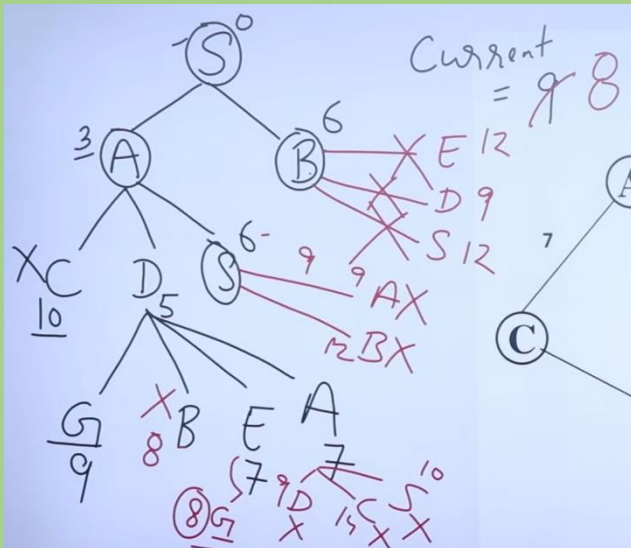 S 0
Current
= 9 8
3 A
B 6
E 12
D 9
S 12
A
7
C
X C
10
D
5
S 6-
9
9 A X
12 B X
G
9
X
8 B
E
7
A
7
8 G
9 D
X
C
X
S 10
X